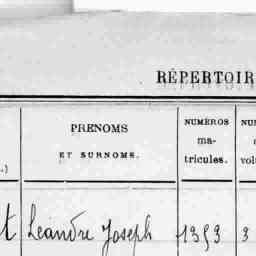 RÉPERTOIR
PRENOMS
ET SURNOMS.
NUMÉROS
ma-
tricules.
NU
vol
.)
t Léandre Joseph 1393 3